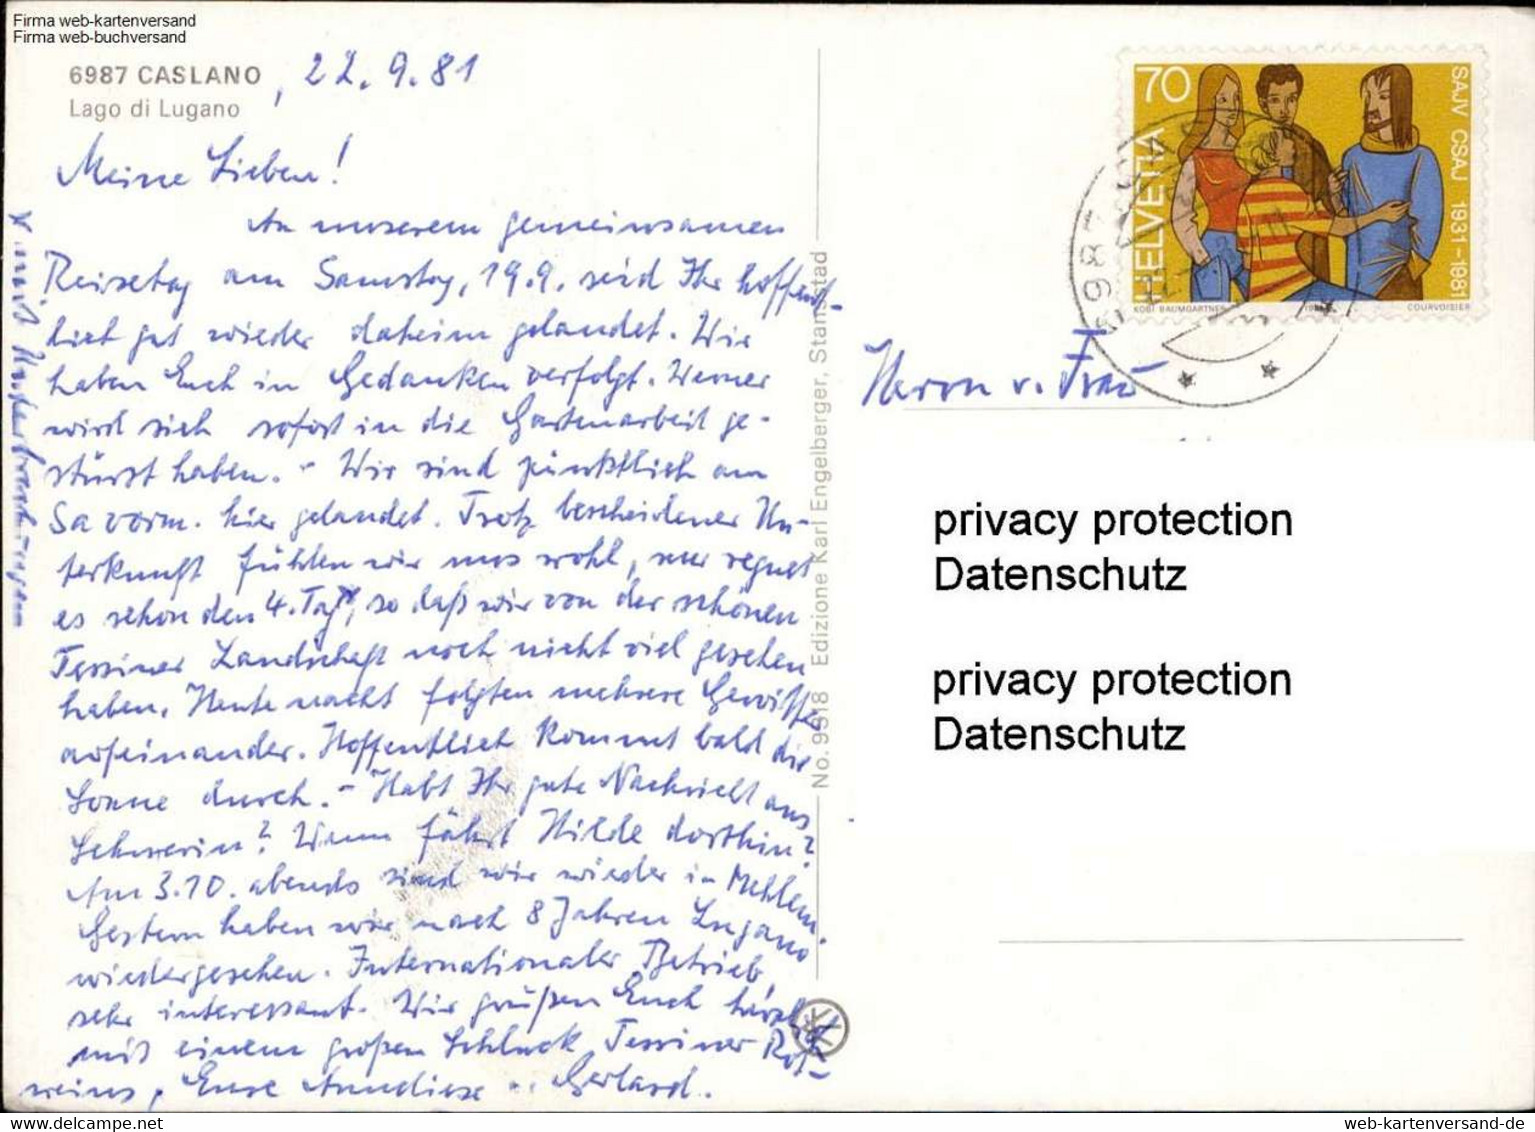 Firma web-kartenversand
Firma web-buchversand
6987 CASLANO, 22.9.81
Lago di Lugano
Meine Lieben!
An unserem gemeinsamen
Reisetag am Samstag, 19.9. seid Ihr hoffent-
lich gut wieder daheim gelandet. Wir
haben Euch in Gedanken verfolgt. Werner
wird sich sofort in die Gartenarbeit ge-
stürzt haben. - Wir sind pünktlich am
Sa vorm. hier gelandet. Trotz bescheidener Un-
terkunft fühlen wir uns wohl, nur regnet
es schon den 4. Tag*, so daß wir von der schönen
Tessiner Landschaft noch nicht viel gesehen
haben. Heute nacht folgten mehrere Gewitter
aufeinander. Hoffentlich kommt bald die
Sonne durch. - Habt Ihr gute Nachricht aus
Schwerin? Wann fährt Hilde dorthin?
Am 3.10. abends sind wir wieder in Mehlem.
Gestern haben wir nach 8 Jahren Lugano
wiedergesehen. Internationaler Betrieb,
sehr interessant. Wir grüßen Euch herzl.
mit einem großen Schluck Tessiner Rot-
weins, Eure Anneliese u. Gerhard.
* mit Unterbrechungen
No. 9918 Edizione Karl Engelberger, Stansstad
70
HELVETIA
SAJV CSAJ 1931-1981
KOBI BAUMGARTNER
COURVOISIER
6987
Herrn u. Frau
privacy protection
Datenschutz
privacy protection
Datenschutz
web-kartenversand-de